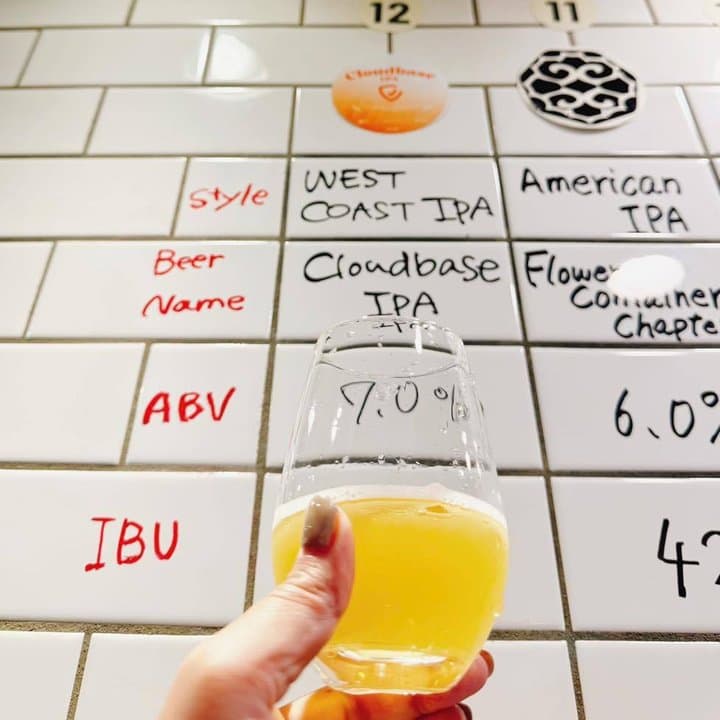 12
11
Cloudbase
IPA
Style
WEST
COAST IPA
American
IPA
Beer
Name
Cloudbase
IPA
Flower
Container
ABV
7.0%
6.0%
IBU